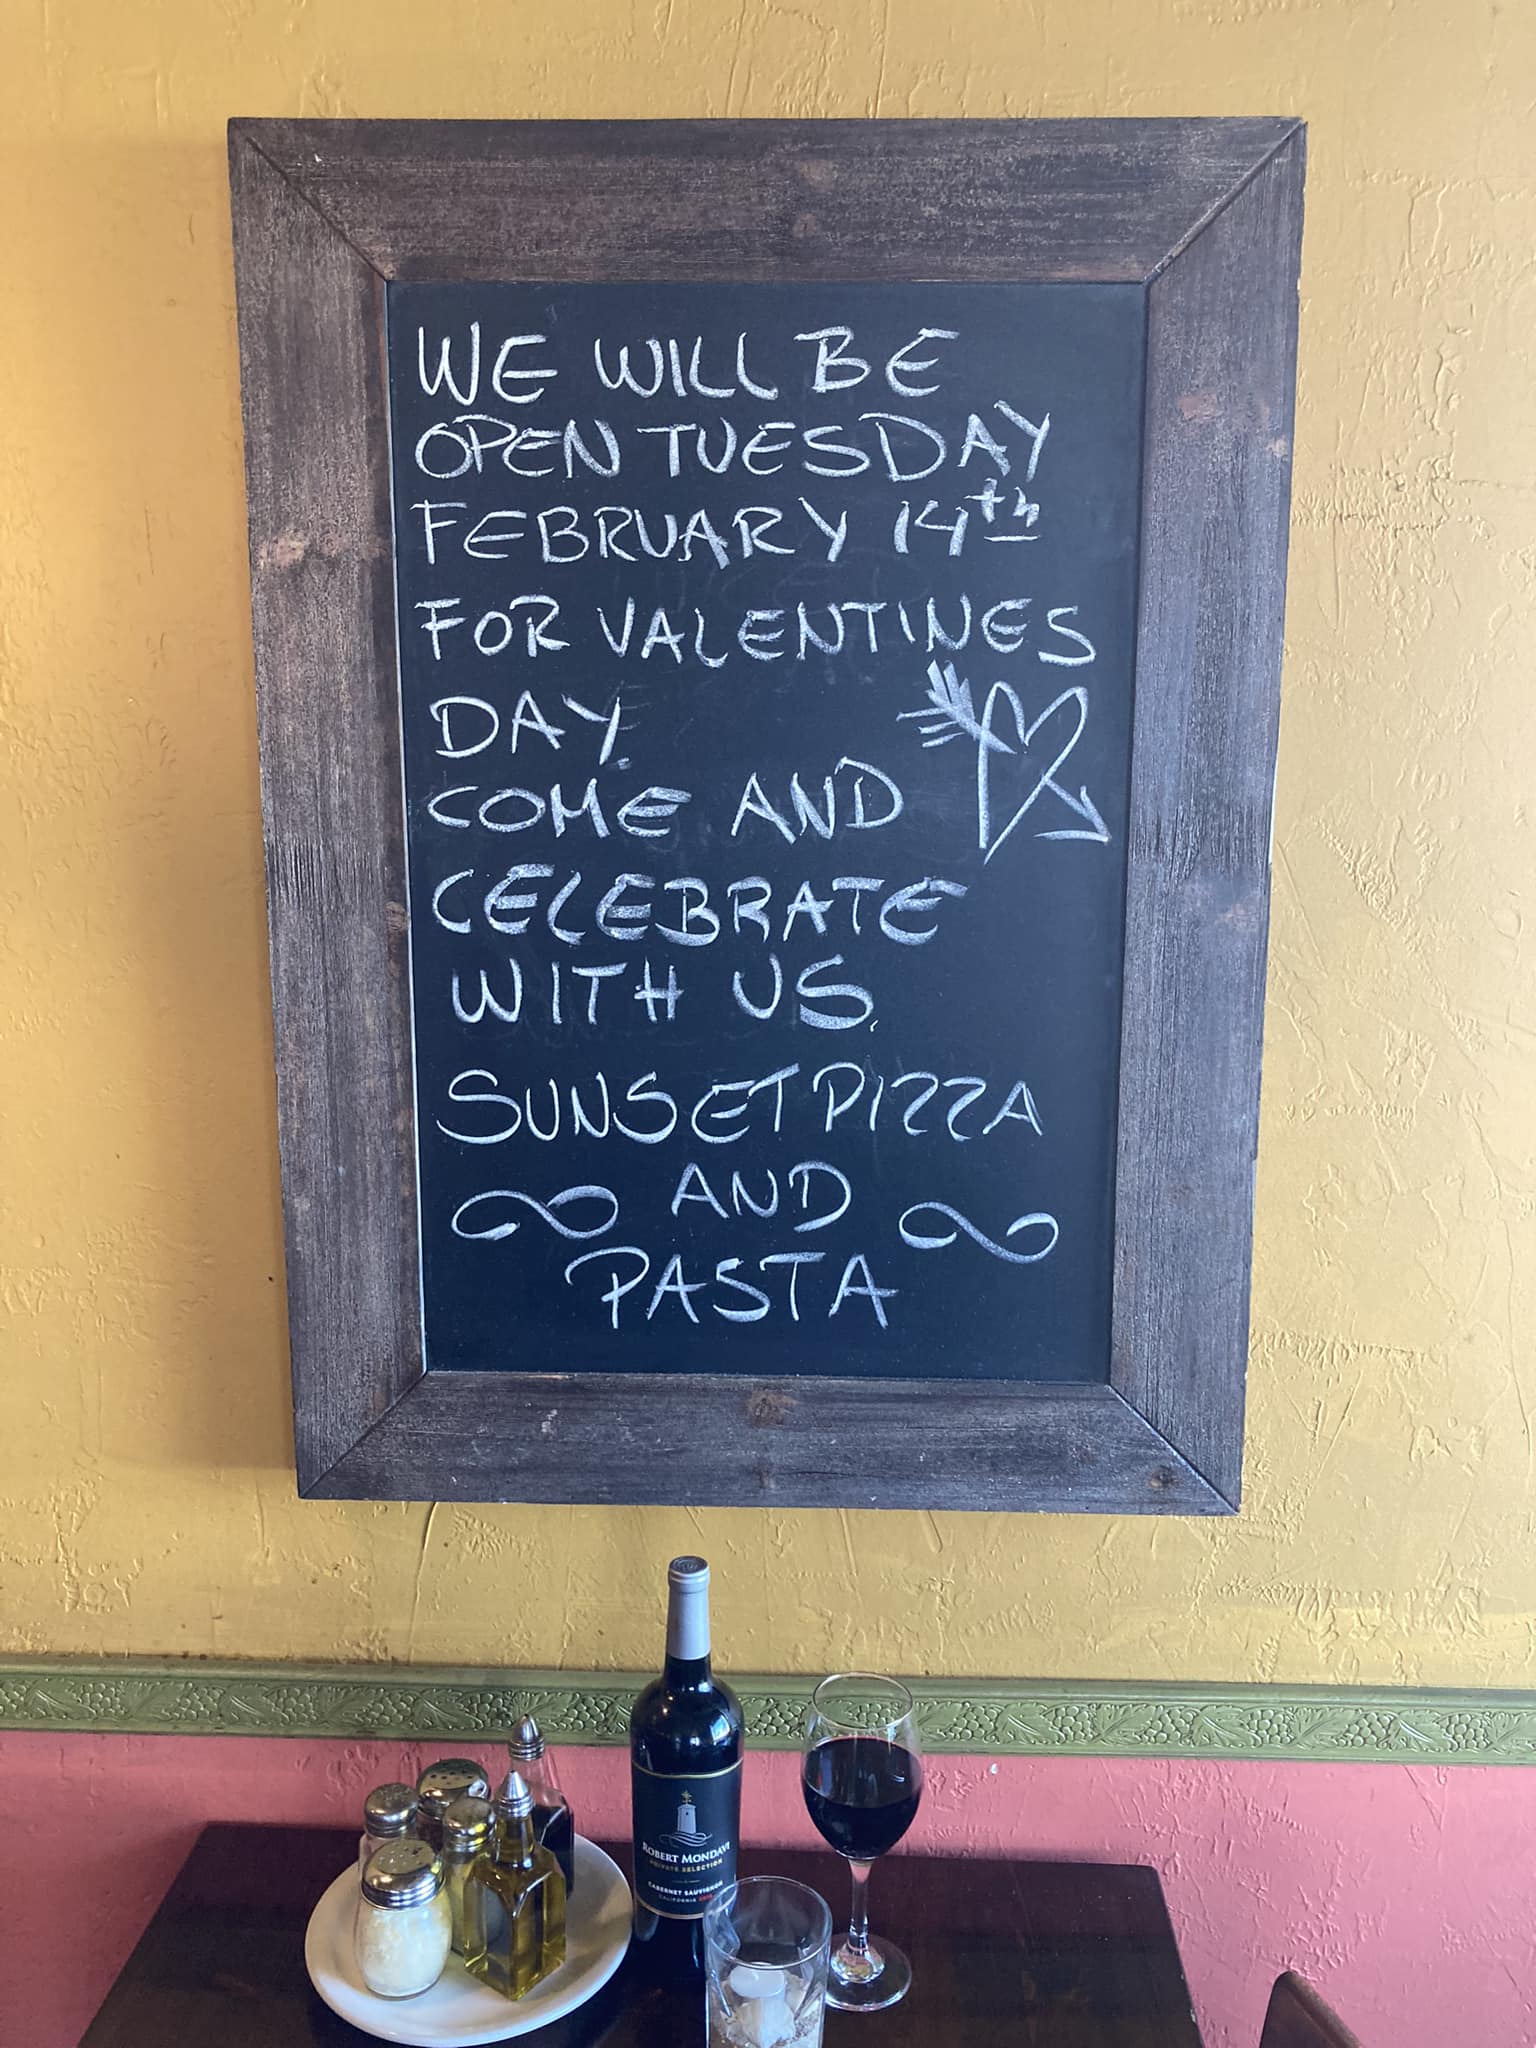 WE WILL BE
OPEN TUESDAY
FEBRUARY 14th
FOR VALENTINES
DAY.
COME AND
CELEBRATE
WITH US.
SUNSET PIZZA
AND
PASTA
ROBERT MONDAVI
PRIVATE SELECTION
CABERNET SAUVIGNON
CALIFORNIA